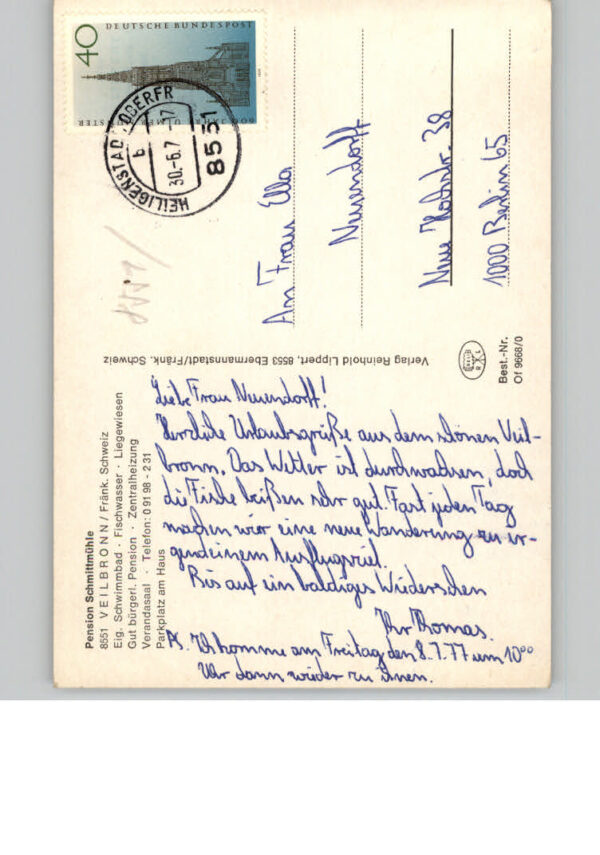 Pension Schmittmühle
8551 VEILBRONN / Fränk. Schweiz
Eig. Schwimmbad · Fischwasser · Liegewiesen
Gut bürgerl. Pension · Zentralheizung
Verandasaal · Telefon: 0 91 98 - 2 31
Parkplatz am Haus
Liebe Frau Neuendorff!
Herzliche Urlaubsgrüße aus dem schönen Veil-
bronn. Das Wetter ist durchwachsen, doch
die Fische beißen sehr gut. Fast jeden Tag
machen wir eine neue Wanderung zu ir-
gendeinem Ausflugsziel.
Bis auf ein baldiges Wiedersehen
Ihr Thomas.
PS. Ich komme am Freitag den 8.7.77 um 10⁰⁰
Uhr dann wieder zu ihnen.
Verlag Reinhold Lippert, 8553 Ebermannstadt/Fränk. Schweiz
Best.-Nr.
Of 9668/0
DEUTSCHE BUNDESPOST
40
600 JAHRE ULMER MÜNSTER
HEILIGENSTADT, OBERFR
b
30.-6.7
-17
8551
An Frau Ella
Neuendorff
Neue Hochstr. 38
1000 Berlin 65